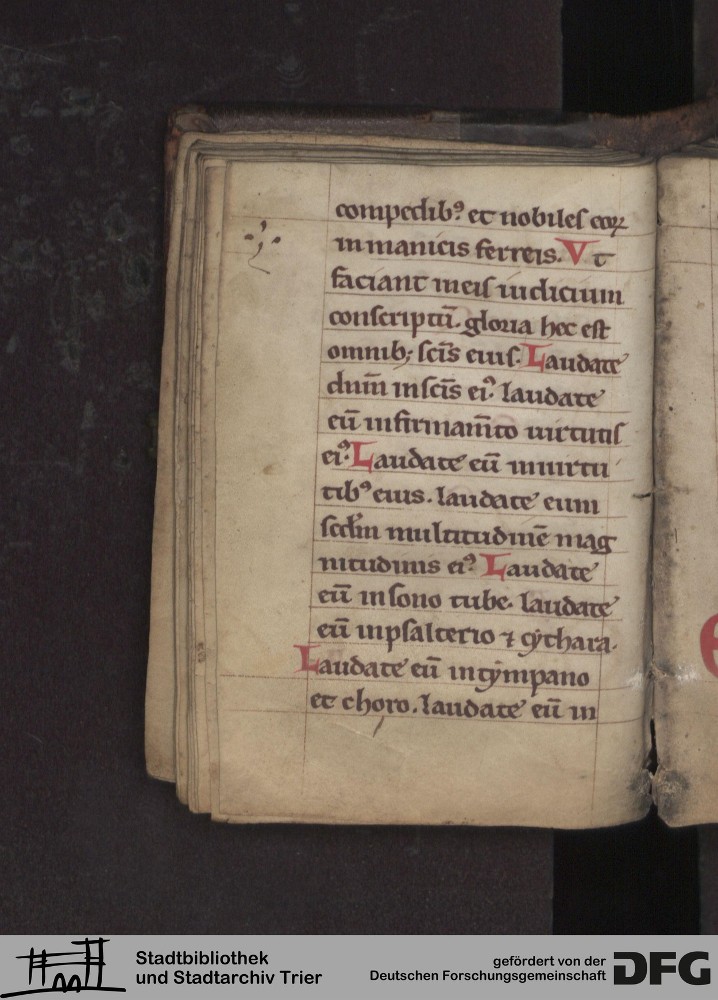 compedib⁹ et nobiles eoꝝ
in manicis ferreis. Vt
faciant in eis iudicium
conscriptū. gloria hec est
omnib; scīs eius. Laudate
dn̄m in scīs ei⁹. laudate
eū in firmam̄to uirtutis
ei⁹. Laudate eū in uirtu
tib⁹ eius. laudate eum
scd̄m multitudinē mag
nitudinis ei⁹ Laudate
eū in sono tube. laudate
eū in psalterio ⁊ cẏthara.
Laudate eū in tẏmpano
et choro. laudate eū in
Stadtbibliothek
und Stadtarchiv Trier
gefördert von der
Deutschen Forschungsgemeinschaft
DFG